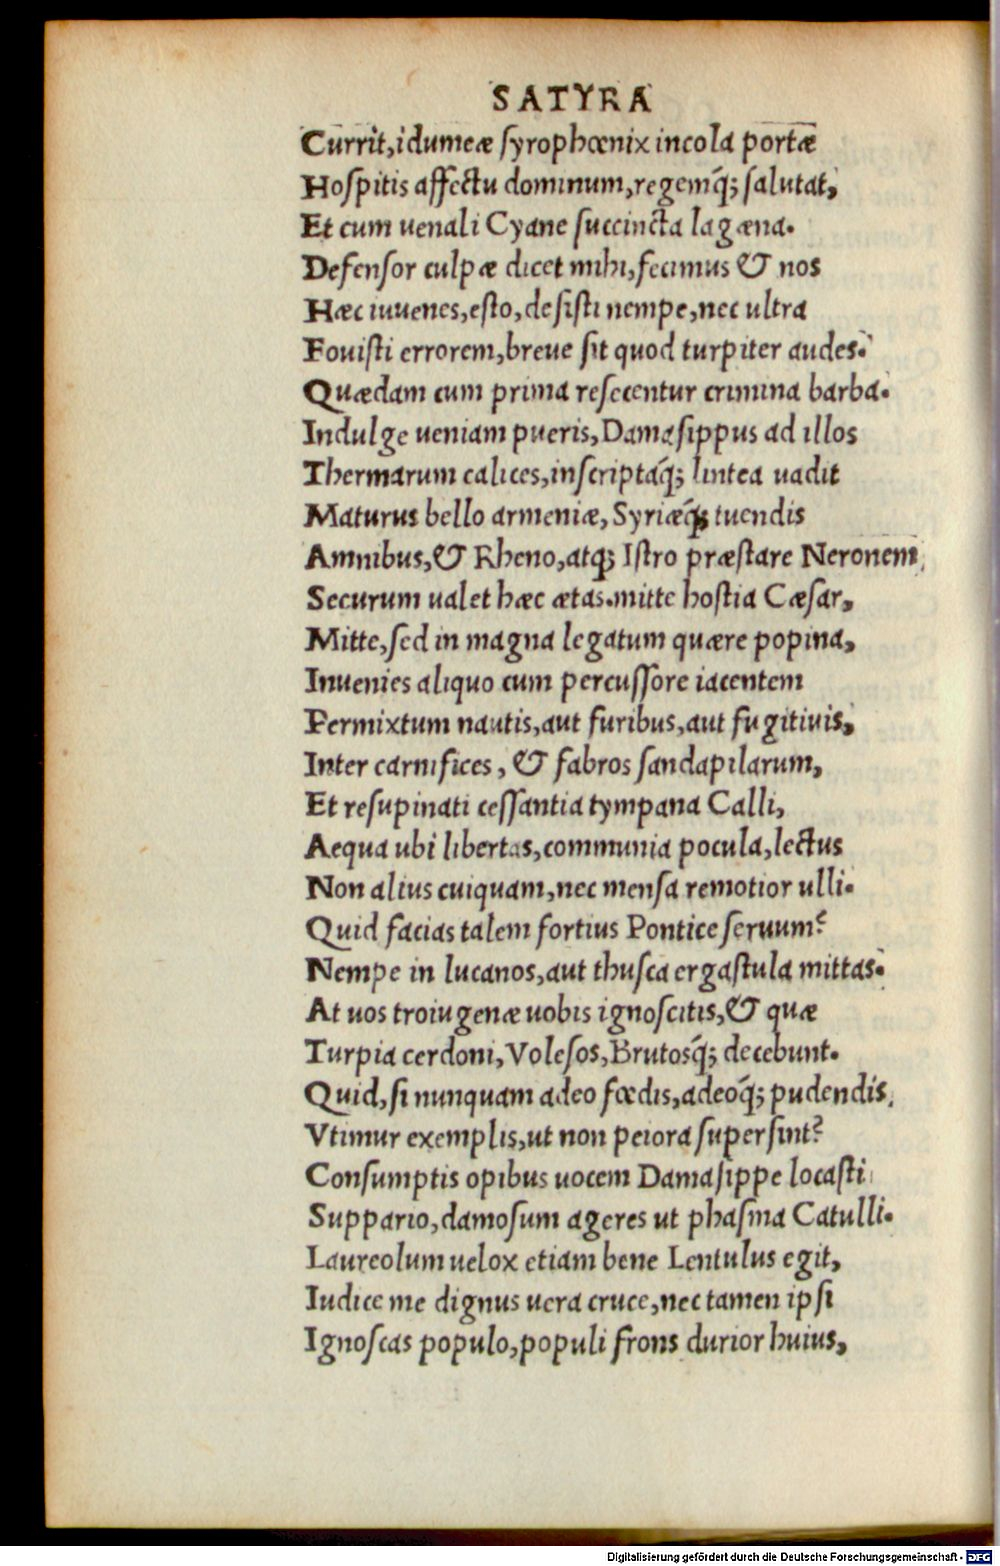 SATYRA
Currit,idumeæ ſyrophœnix incola portæ
Hoſpitis affectu dominum,regemq́; ſalutat,
Et cum uenali Cyane ſuccincta lagæna.
Defenſor culpæ dicet mihi,fecimus & nos
Hæc iuuenes,eſto,deſiſti nempe,nec ultra
Fouiſti errorem,breue ſit quod turpiter audes.
Quædam cum prima reſecentur crimina barba.
Indulge ueniam pueris,Damaſippus ad illos
Thermarum calices,inſcriptaq́; lintea uadit
Maturus bello armeniæ,Syriæq́; tuendis
Amnibus,& Rheno,atq; Iſtro præſtare Neronem,
Securum ualet hæc ætas.mitte hoſtia Cæſar,
Mitte,ſed in magna legatum quære popina,
Inuenies aliquo cum percuſſore iacentem
Permixtum nautis,aut furibus,aut fugitiuis,
Inter carnifices, & fabros ſandapilarum,
Et reſupinati ceſſantia tympana Calli,
Aequa ubi libertas,communia pocula,lectus
Non alius cuiquam,nec menſa remotior ulli.
Quid facias talem fortius Pontice ſeruum?
Nempe in lucanos,aut thuſca ergaſtula mittas.
At uos troiugenæ uobis ignoſcitis,& quæ
Turpia cerdoni,Voleſos,Brutosq́; decebunt.
Quid,ſi nunquam adeo fœdis,adeoq́; pudendis,
Vtimur exemplis,ut non peiora ſuperſint?
Conſumptis opibus uocem Damaſippe locaſti
Suppario,damoſum ageres ut phaſma Catulli.
Laureolum uelox etiam bene Lentulus egit,
Iudice me dignus uera cruce,nec tamen ipſi
Ignoſcas populo,populi frons durior huius,
Digitalisierung gefördert durch die Deutsche Forschungsgemeinschaft - DFG